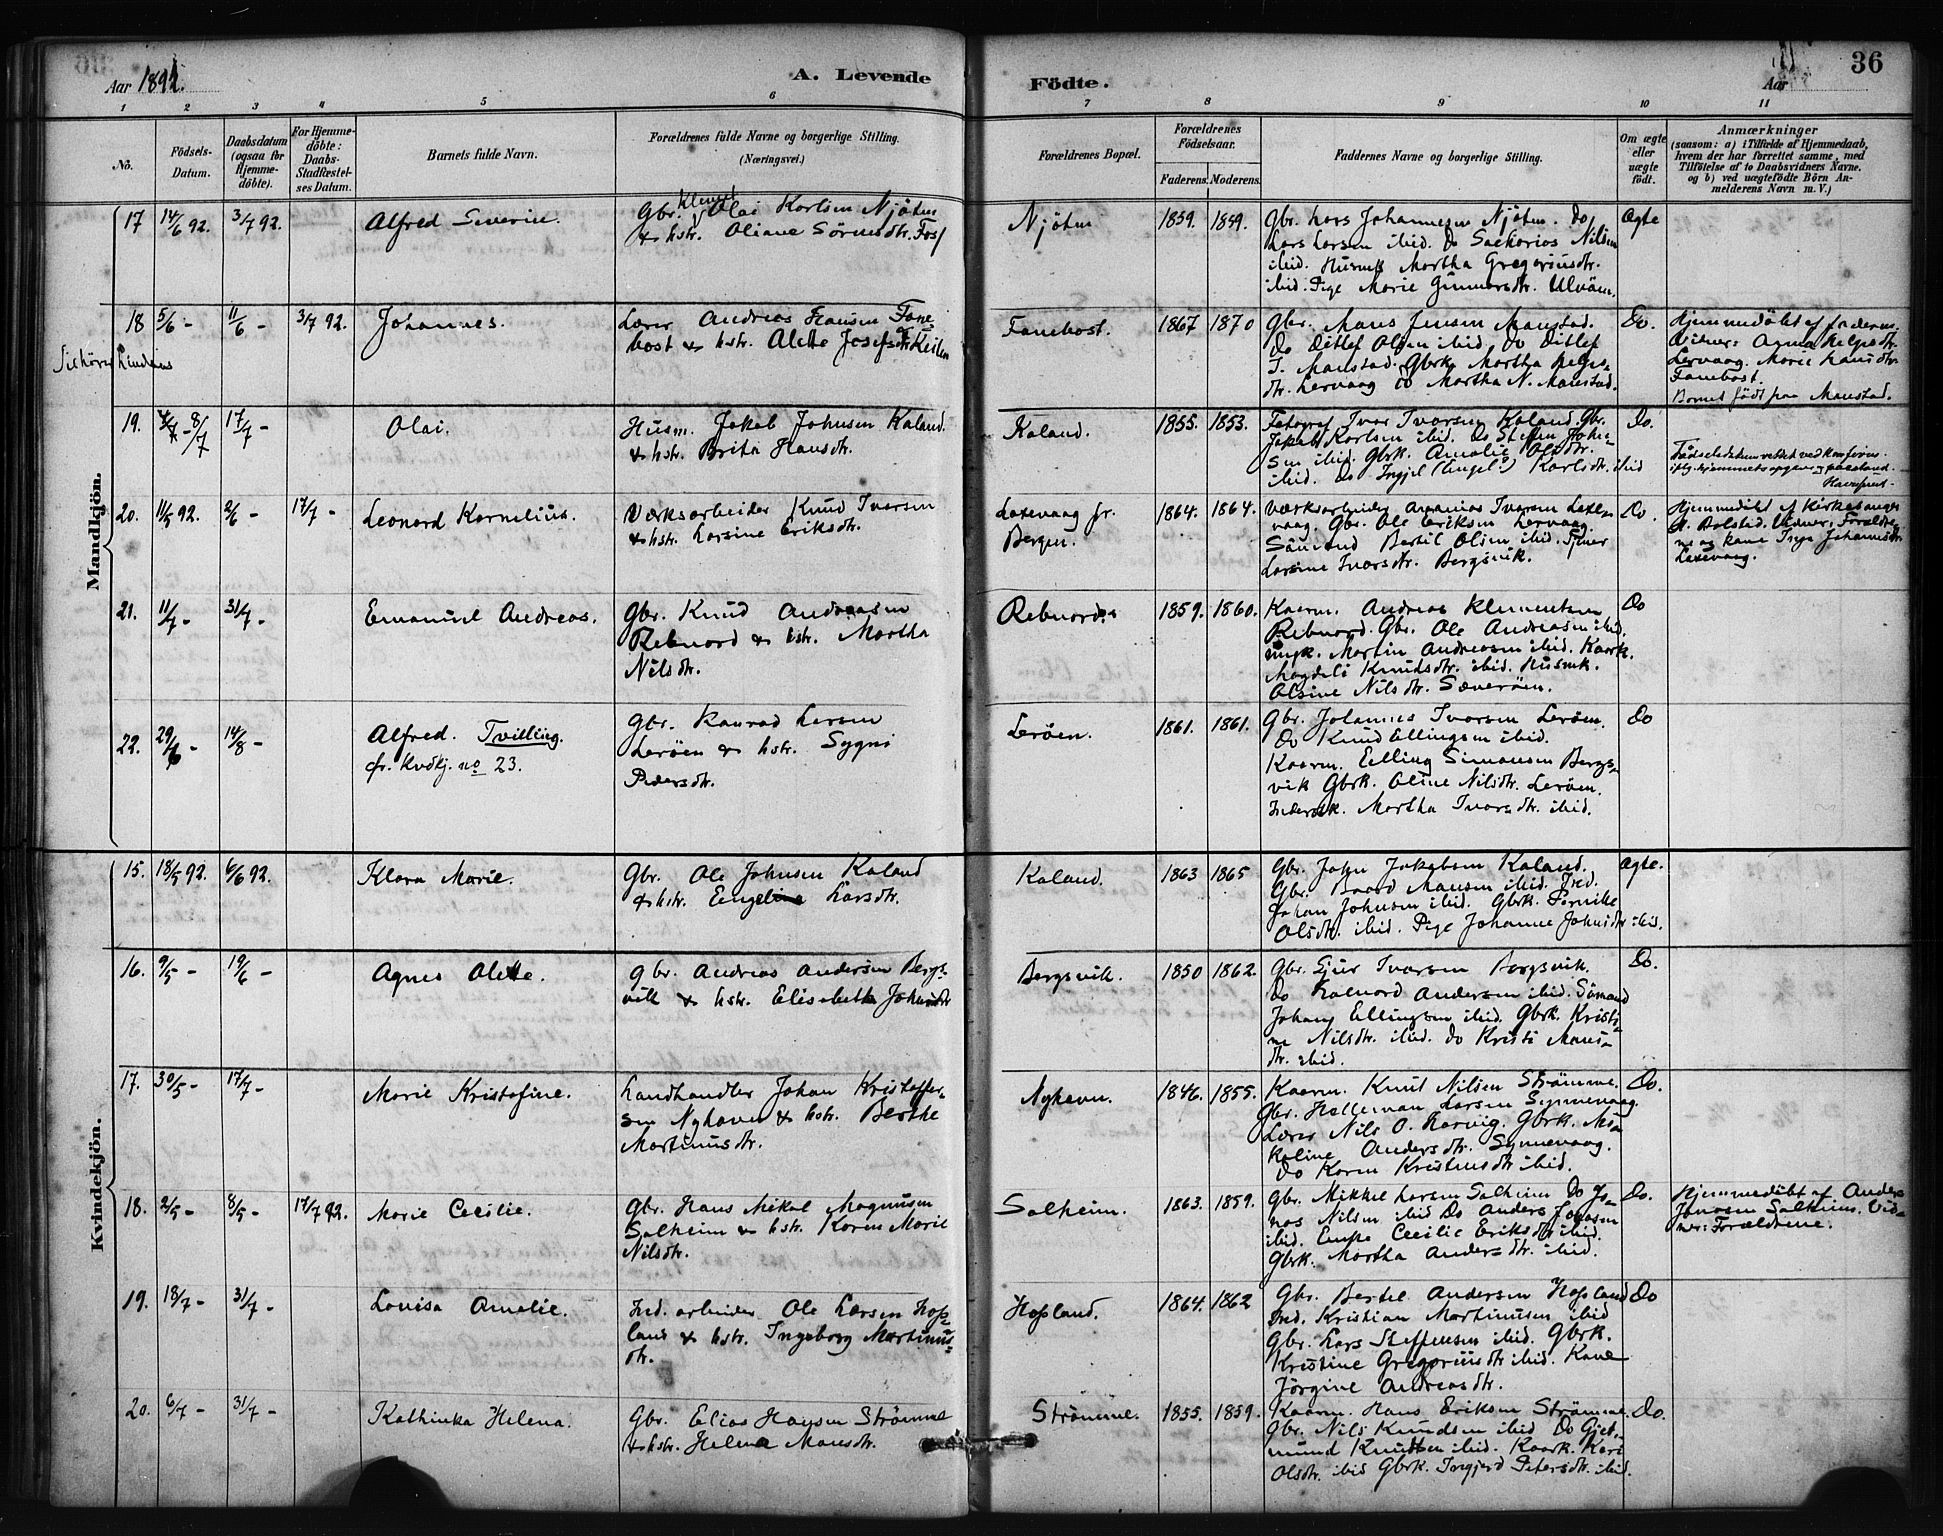 Aar 1892.
A. Levende
Födte.
Aar
36
1 2 3 4 5 6 7 8 9 10 11
No.
Födsels-
Datum.
Daabsdatum
(ogsaa for
Hjemme-
döbte).
For Hjemme-
döbte:
Daabs-
Stadfæstel-
ses Datum.
Barnets fulde Navn.
Forældrenes fulde Navne og borgerlige Stilling.
(Næringsvei.)
Forældrenes Bopæl.
Forældrenes
Födselsaar.
Faderens. Moderens.
Faddernes Navne og borgerlige Stilling.
Om ægte
eller
uægte
födt.
Anmærkninger
(saasom: a) i Tilfælde af Hjemmedaab,
hvem der har forrettet samme, med
Tilföielse af to Daabsvidners Navne.
og b) ved uægtefödte Börn An-
melderens Navn m. V.)
Mandkjön.
17 14/6 92. 3/7 92.
Alfred Severin.
Gbr. Olai Karlsen Njöten
& hstr. Oliane Sörensdtr.
Njöten
1859. 1859.
Gbr. Lars Johannesen Njöten. Do
Lars Larsen ibid. Do Sakarias Nilsen
ibid. Husmk Martha Gregoriusdtr.
ibid. Pige Marie Gunnarsdtr. Ulvöen.
Ægte
18 5/6 - 11/6 - 3/7 92.
Johannes.
Lærer Andreas Hansen Fane-
bost & hstr. Alette Josefsdtr.
Fanebost.
1867 1870
Gbr. Mons Jensen Monstad.
Do Ditlef Olsen ibid. Do Ditlef
J. Monstad. Gbrk. Martha Helges-
dtr. Lervaag Do Martha N. Monstad.
Do.
Hjemmedöbt af faderen.
Vidner: Anna Helgesdtr.
Lervaag. Marie Hansdtr.
Fanebost.
Barnet födt paa Monstad.
19. 8/7 17/7 -
Olai.
Husm. Jakob Johnsen Kaland.
& hstr. Brita Hansdtr.
Kaland.
1855. 1853.
Fotograf Ivar Ivarsen Kaland. Gbr.
Jakob Karlsen ibid. Do Steffen John-
sen ibid. Gbrk. Amalie Olsdtr.
ibid. Do Ingjel (Engel?) Karlsdtr. ibid
Do.
20. 11/5 92. 2/6 - 17/7 -
Leonard Kornelius.
Værksarbeider Knud Ivarsen
& hstr. Larsine Eriksdtr.
Laxevaag fr.
Bergen.
1864. 1864.
Værksarbeider Ananias Ivarsen Laxe-
vaag. Gbr. Ole Eriksen Lervaag.
Sömand Bertil Olsen ibid. Tjener
Larsine Ivarsdtr. Bergsvik.
Do.
Hjemmedöbt af Kirkesanger
Rolstad. Vidner: Forældre-
ne og kone Inga Johannesdtr
Laxevaag.
21. 11/7 - 31/7 -
Emanuel Andreas.
Gbr. Knud Andreasen
Rebnord & hstr. Martha
Nilsdtr.
Rebnord.
1859. 1860.
Kaarm. Andreas Klementsen
Rebnord. Gbr. Ole Andreasen ibid.
Ungk. Martin Andreasen ibid. Kaark.
Magdeli Knudsdtr. ibid. Husmk.
Olsine Nilsdtr. Sæveröen.
Do
22. 29/6 - 14/8 -
Alfred. Tvilling.
fr. Kvdkj. no 23.
Gbr. Konrad Larsen
Leröen & hstr. Sygni
Pedersdtr.
Leröen.
1861. 1861.
Gbr. Johannes Ivarsen Leröen.
Do Knud Ellingsen ibid.
Kaarm. Elling Simonsen Bergs-
vik Gbrk. Oline Nilsdtr. Leröen.
Inderstk. Martha Ivarsdtr. ibid.
Do
Kvindekjön.
15. 18/5 92. 6/6 92.
Klara Marie.
Gbr. Ole Johnsen Kaland
& hstr. Engeline Larsdtr.
Kaland.
1863 1865
Gbr. John Jakobsen Kaland.
Gbr. Baard Monsen ibid. Ind.
Johan Johnsen ibid. Gbrk. Pernille
Olsdtr. ibid. Pige Johanne Johnsdtr ibid.
Ægte.
16. 9/5 - 19/6 -
Agnes Alette.
Gbr. Andreas Andersen Bergs-
vik & hstr. Elisabeth Johnsdtr
Bergsvik.
1850 1862.
Gbr. Sjur Ivarsen Bergsvik.
Do Kolnord Andersen ibid. Sömand
Johan Ellingsen ibid. Gbrk. Kristi-
ne Nilsdtr. ibid. Do Kristi Mons-
dtr. ibid.
Do.
17. 30/5 - 17/7 -
Marie Kristofine.
Landhandler Johan Kristoffer-
sen Nyhavn & hstr. Berthe
Martinusdtr.
Nyhavn.
1846. 1855.
Kaarm. Knut Nilsen Strömme.
Gbr. Halleman Larsen Synnevaag.
Lærer Nils O. Narvig. Gbrk. Mi-
kaline Andersdtr. Synnevaag.
Do Karen Kristensdtr ibid.
Do.
18. 2/5 - 8/5 - 17/7 92.
Marie Cecilie.
Gbr. Hans Mikal Magnusen
Solheim & hstr. Karen Marie
Nilsdtr.
Solheim.
1863. 1859.
Gbr. Mikkel Larsen Solheim Do Jo-
nas Nilsen ibid Do Anders Jonasen
ibid. Enke Cecilie Eriksdtr ibid.
Gbrk. Martha Andersdtr. ibid.
Do.
Hjemmedöbt af Anders
Jonasen Solheim. Vid-
ner: Forældrene.
19. 18/7 - 31/7 -
Lovisa Amalie.
Ind. arbeider Ole Larsen Hop-
land & hstr. Ingeborg Martinus-
dtr.
Hopland.
1864. 1862
Gbr. Bertel Andersen Hopland
Ind. Kristian Martinusen ibid
Gbr. Lars Steffensen ibid. Gbrk.
Kristine Gregoriusdtr ibid. Kone
Jörgine Andreasdtr.
Do
20. 6/7 - 31/7 -
Kathinka Helena.
Gbr. Elias Hansen Strömme
& hstr. Helena Monsdtr.
Strömme.
1855. 1859.
Kaarm. Hans Eriksen Strömme.
Gbr. Nils Knudsen ibid Do Gjet-
mund Knudsen ibid. Kaark. Kari
Olsdtr. ibid Gbrk. Ingjerd Petersdtr. ibid.
Do.